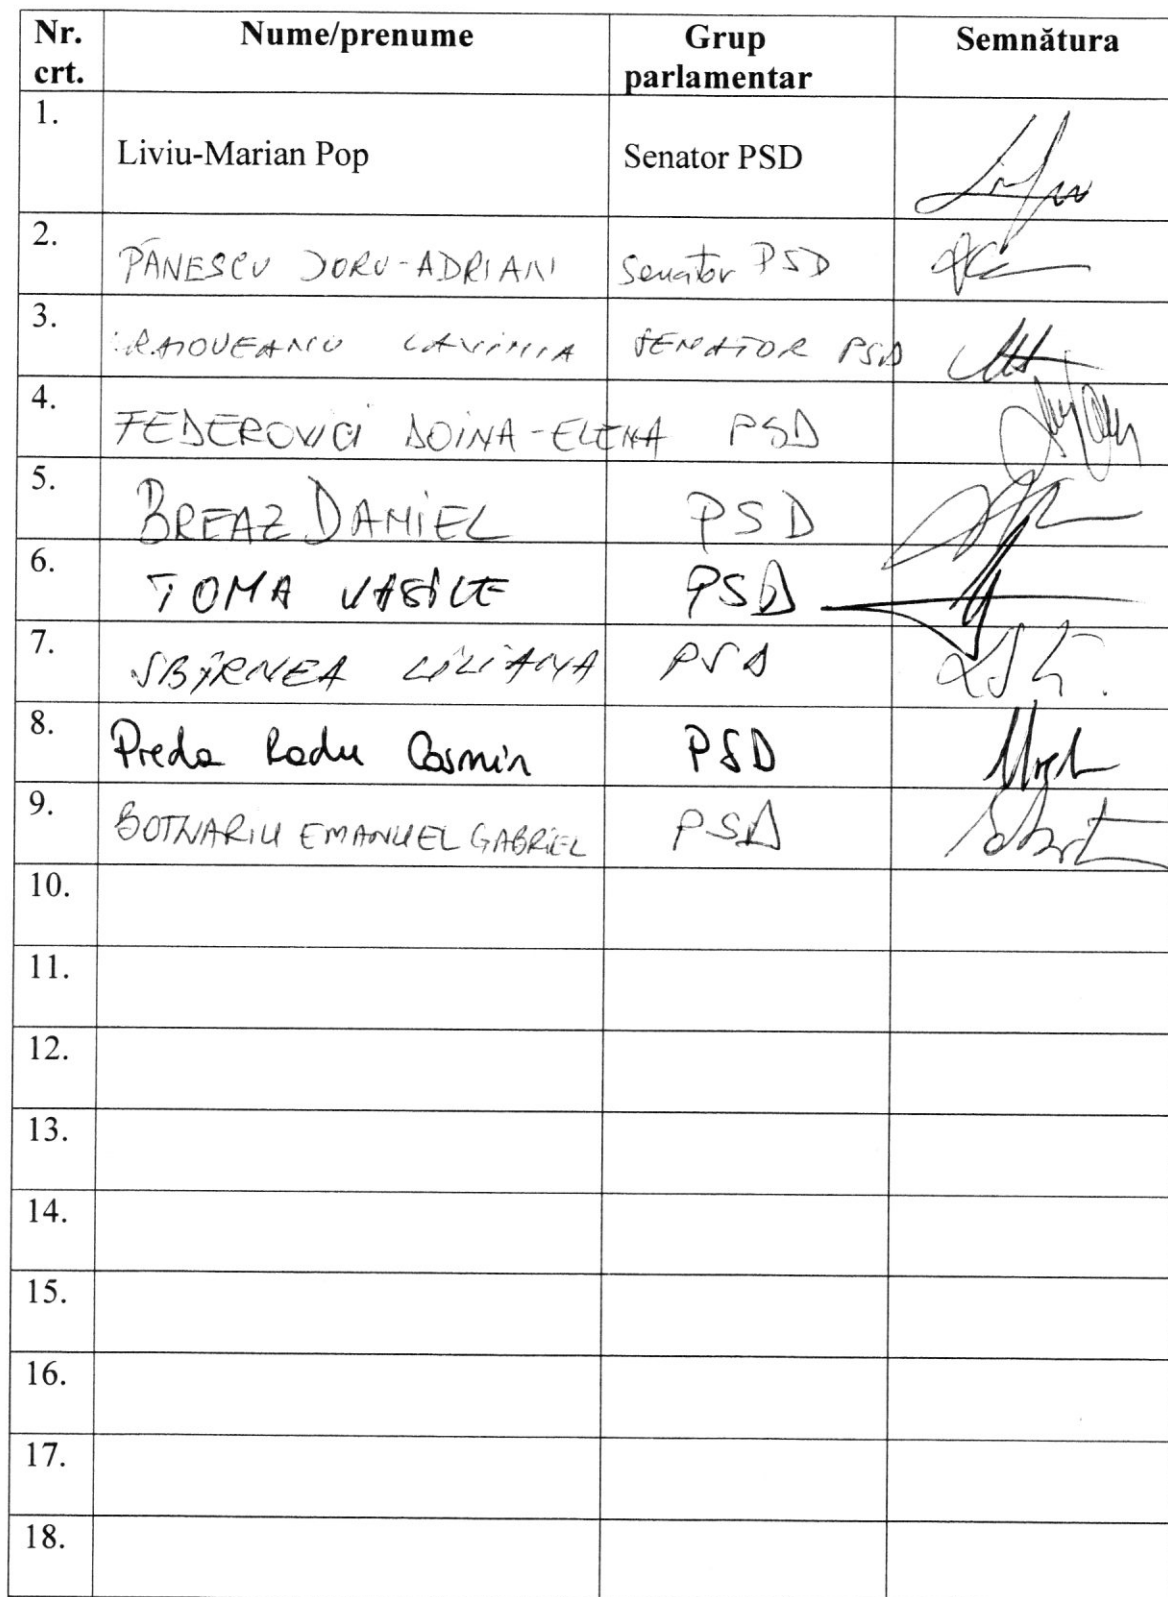 Nr. crt. Nume/prenume Grup parlamentar Semnătura
1. Liviu-Marian Pop Senator PSD
2. PÂNESCU DORU-ADRIAN Senator PSD
3. LAVINIA SENATOR PSD
4. FEDEROVICI DOINA-ELENA PSD
5. BREAZ DANIEL PSD
6. TOMA VASILE PSD
7. SBÎRNEA LILIANA PSD
8. Preda Radu Cosmin PSD
9. BOTNARIU EMANUEL GABRIEL PSD
10.
11.
12.
13.
14.
15.
16.
17.
18.